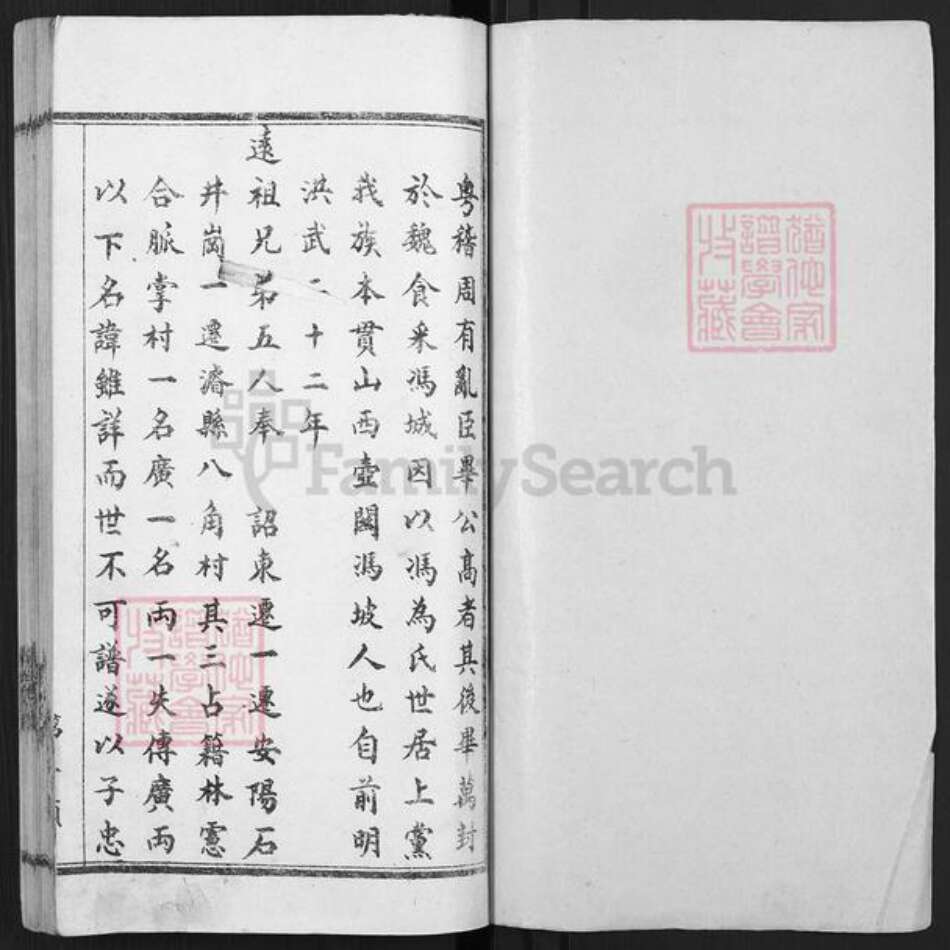 粤稽周有亂臣畢公高者其後畢萬封
於魏食采馮城因以馮為氏世居上黨
我族本貫山西壺關馮坡人也自前明
洪武二十二年
遠祖兄弟五人奉 詔東遷一遷安陽石
井崗一遷濬縣八角村其三占籍林憲
合脈掌村一名廣一名両一失傳廣両
以下名諱雖詳而世不可譜遂以子忠
譜學會
收藏
FamilySearch